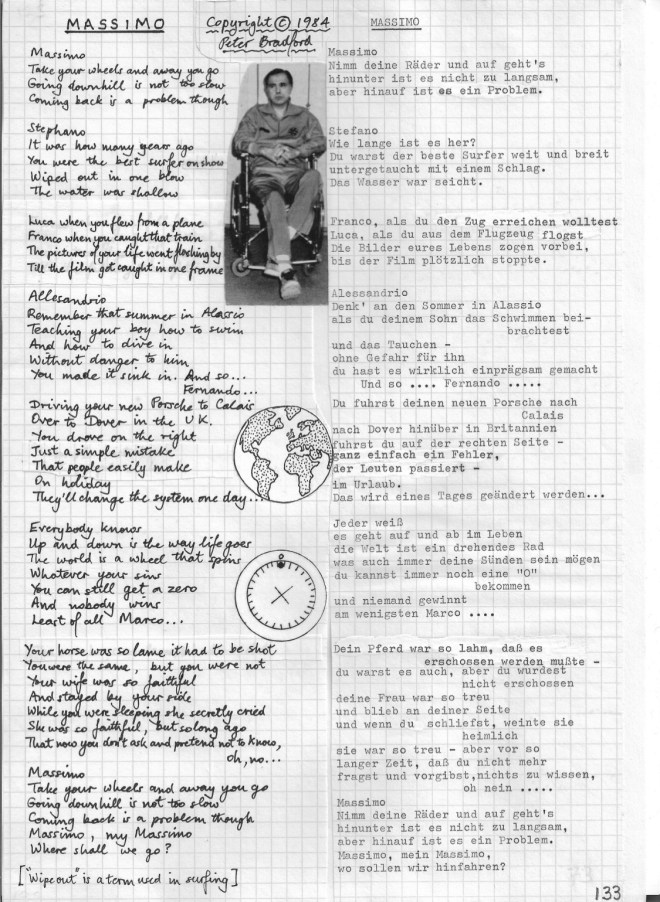 MASSIMO
Copyright © 1984
Peter Bradford
MASSIMO
Massimo
Take your wheels and away you go
Going downhill is not too slow
Coming back is a problem though
Stephano
It was how many years ago
You were the best surfer on show
Wiped out in one blow
The water was shallow
Luca when you flew from a plane
Franco when you caught that train
The pictures of your life went flashing by
Till the film got caught in one frame
Allesandrio
Remember that summer in Alassio
Teaching your boy how to swim
And how to dive in
Without danger to him
You made it sink in. And so...
Fernando...
Driving your new Porsche to Calais
Over to Dover in the U.K.
You drove on the right
Just a simple mistake
That people easily make
On holiday
They'll change the system one day...
Everybody knows
Up and down is the way life goes
The world is a wheel that spins
Whatever your sins
You can still get a zero
And nobody wins
Least of all Marco...
Your horse was so lame it had to be shot
You were the same, but you were not
Your wife was so faithful
And stayed by your side
While you were sleeping she secretly cried
She was so faithful, but so long ago
That now you don't ask and pretend not to know,
oh, no...
Massimo
Take your wheels and away you go
Going downhill is not too slow
Coming back is a problem though
Massimo, my Massimo
Where shall we go?
["Wipe out" is a term used in surfing]
Massimo
Nimm deine Räder und auf geht's
hinunter ist es nicht zu langsam,
aber hinauf ist es ein Problem.
Stefano
Wie lange ist es her?
Du warst der beste Surfer weit und breit
untergetaucht mit einem Schlag.
Das Wasser war seicht.
Franco, als du den Zug erreichen wolltest
Luca, als du aus dem Flugzeug flogst
Die Bilder eures Lebens zogen vorbei,
bis der Film plötzlich stoppte.
Alessandrio
Denk' an den Sommer in Alassio
als du deinem Sohn das Schwimmen bei-
brachtest
und das Tauchen -
ohne Gefahr für ihn
du hast es wirklich einprägsam gemacht
Und so .... Fernando .....
Du fuhrst deinen neuen Porsche nach
Calais
nach Dover hinüber in Britannien
fuhrst du auf der rechten Seite -
ganz einfach ein Fehler,
der Leuten passiert -
im Urlaub.
Das wird eines Tages geändert werden...
Jeder weiß
es geht auf und ab im Leben
die Welt ist ein drehendes Rad
was auch immer deine Sünden sein mögen
du kannst immer noch eine "O"
bekommen
und niemand gewinnt
am wenigsten Marco ....
Dein Pferd war so lahm, daß es
erschossen werden mußte -
du warst es auch, aber du wurdest
nicht erschossen
deine Frau war so treu
und blieb an deiner Seite
und wenn du schliefst, weinte sie
heimlich
sie war so treu - aber vor so
langer Zeit, daß du nicht mehr
fragst und vorgibst, nichts zu wissen,
oh nein .....
Massimo
Nimm deine Räder und auf geht's
hinunter ist es nicht zu langsam,
aber hinauf ist es ein Problem.
Massimo, mein Massimo,
wo sollen wir hinfahren?
133